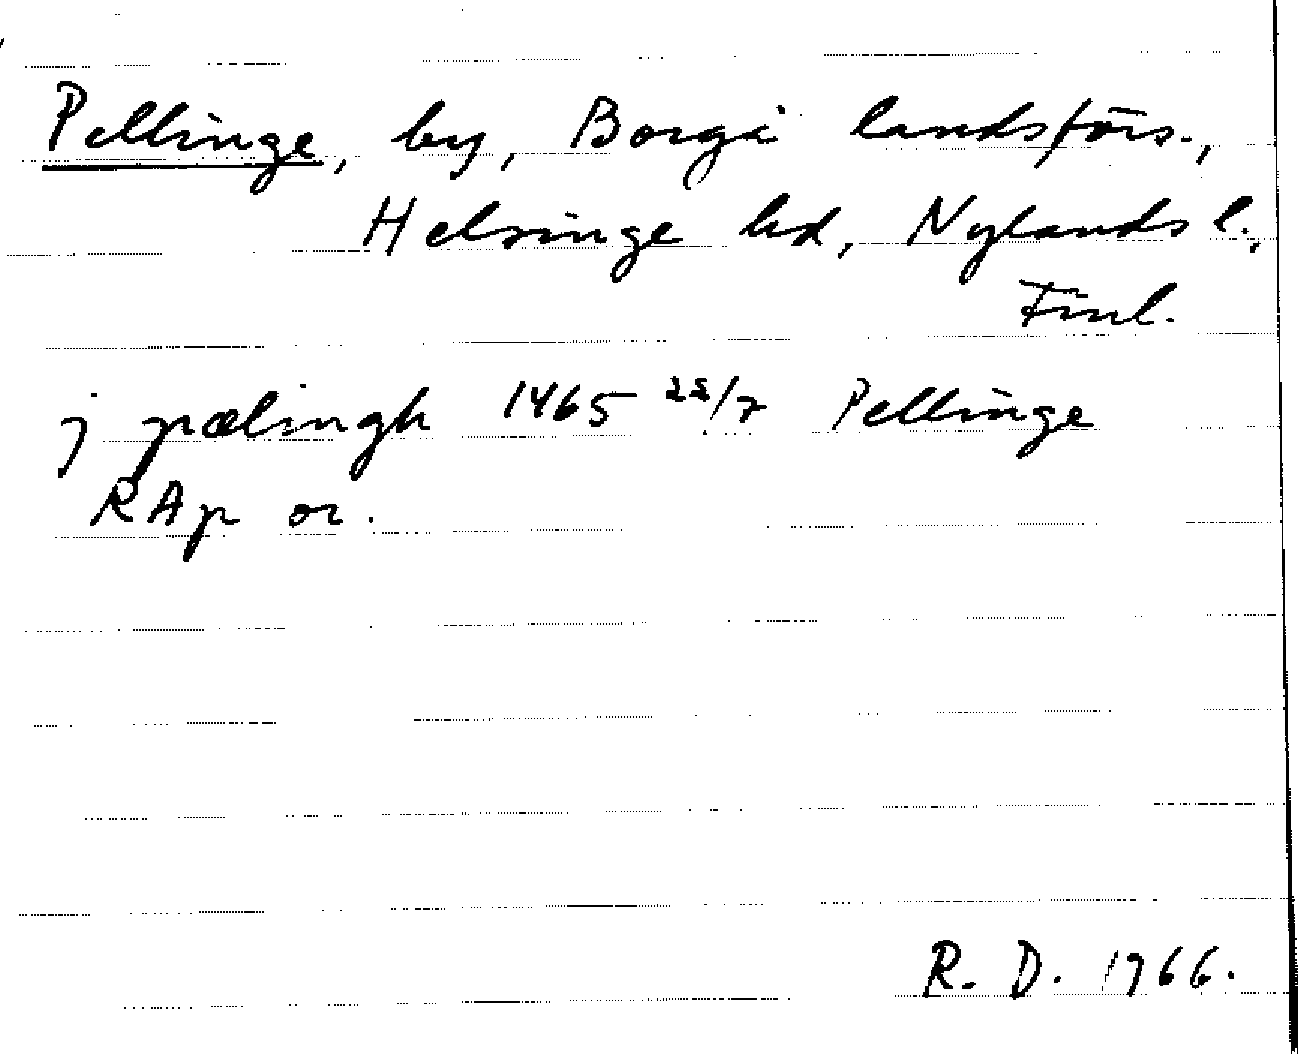 Pellinge, by, Borgå landsförs.,
Helsinge hd, Nylands l.,
Finl.
j pælingh 1465 22/7 Pellinge
RAp or.
R. D. 1966.